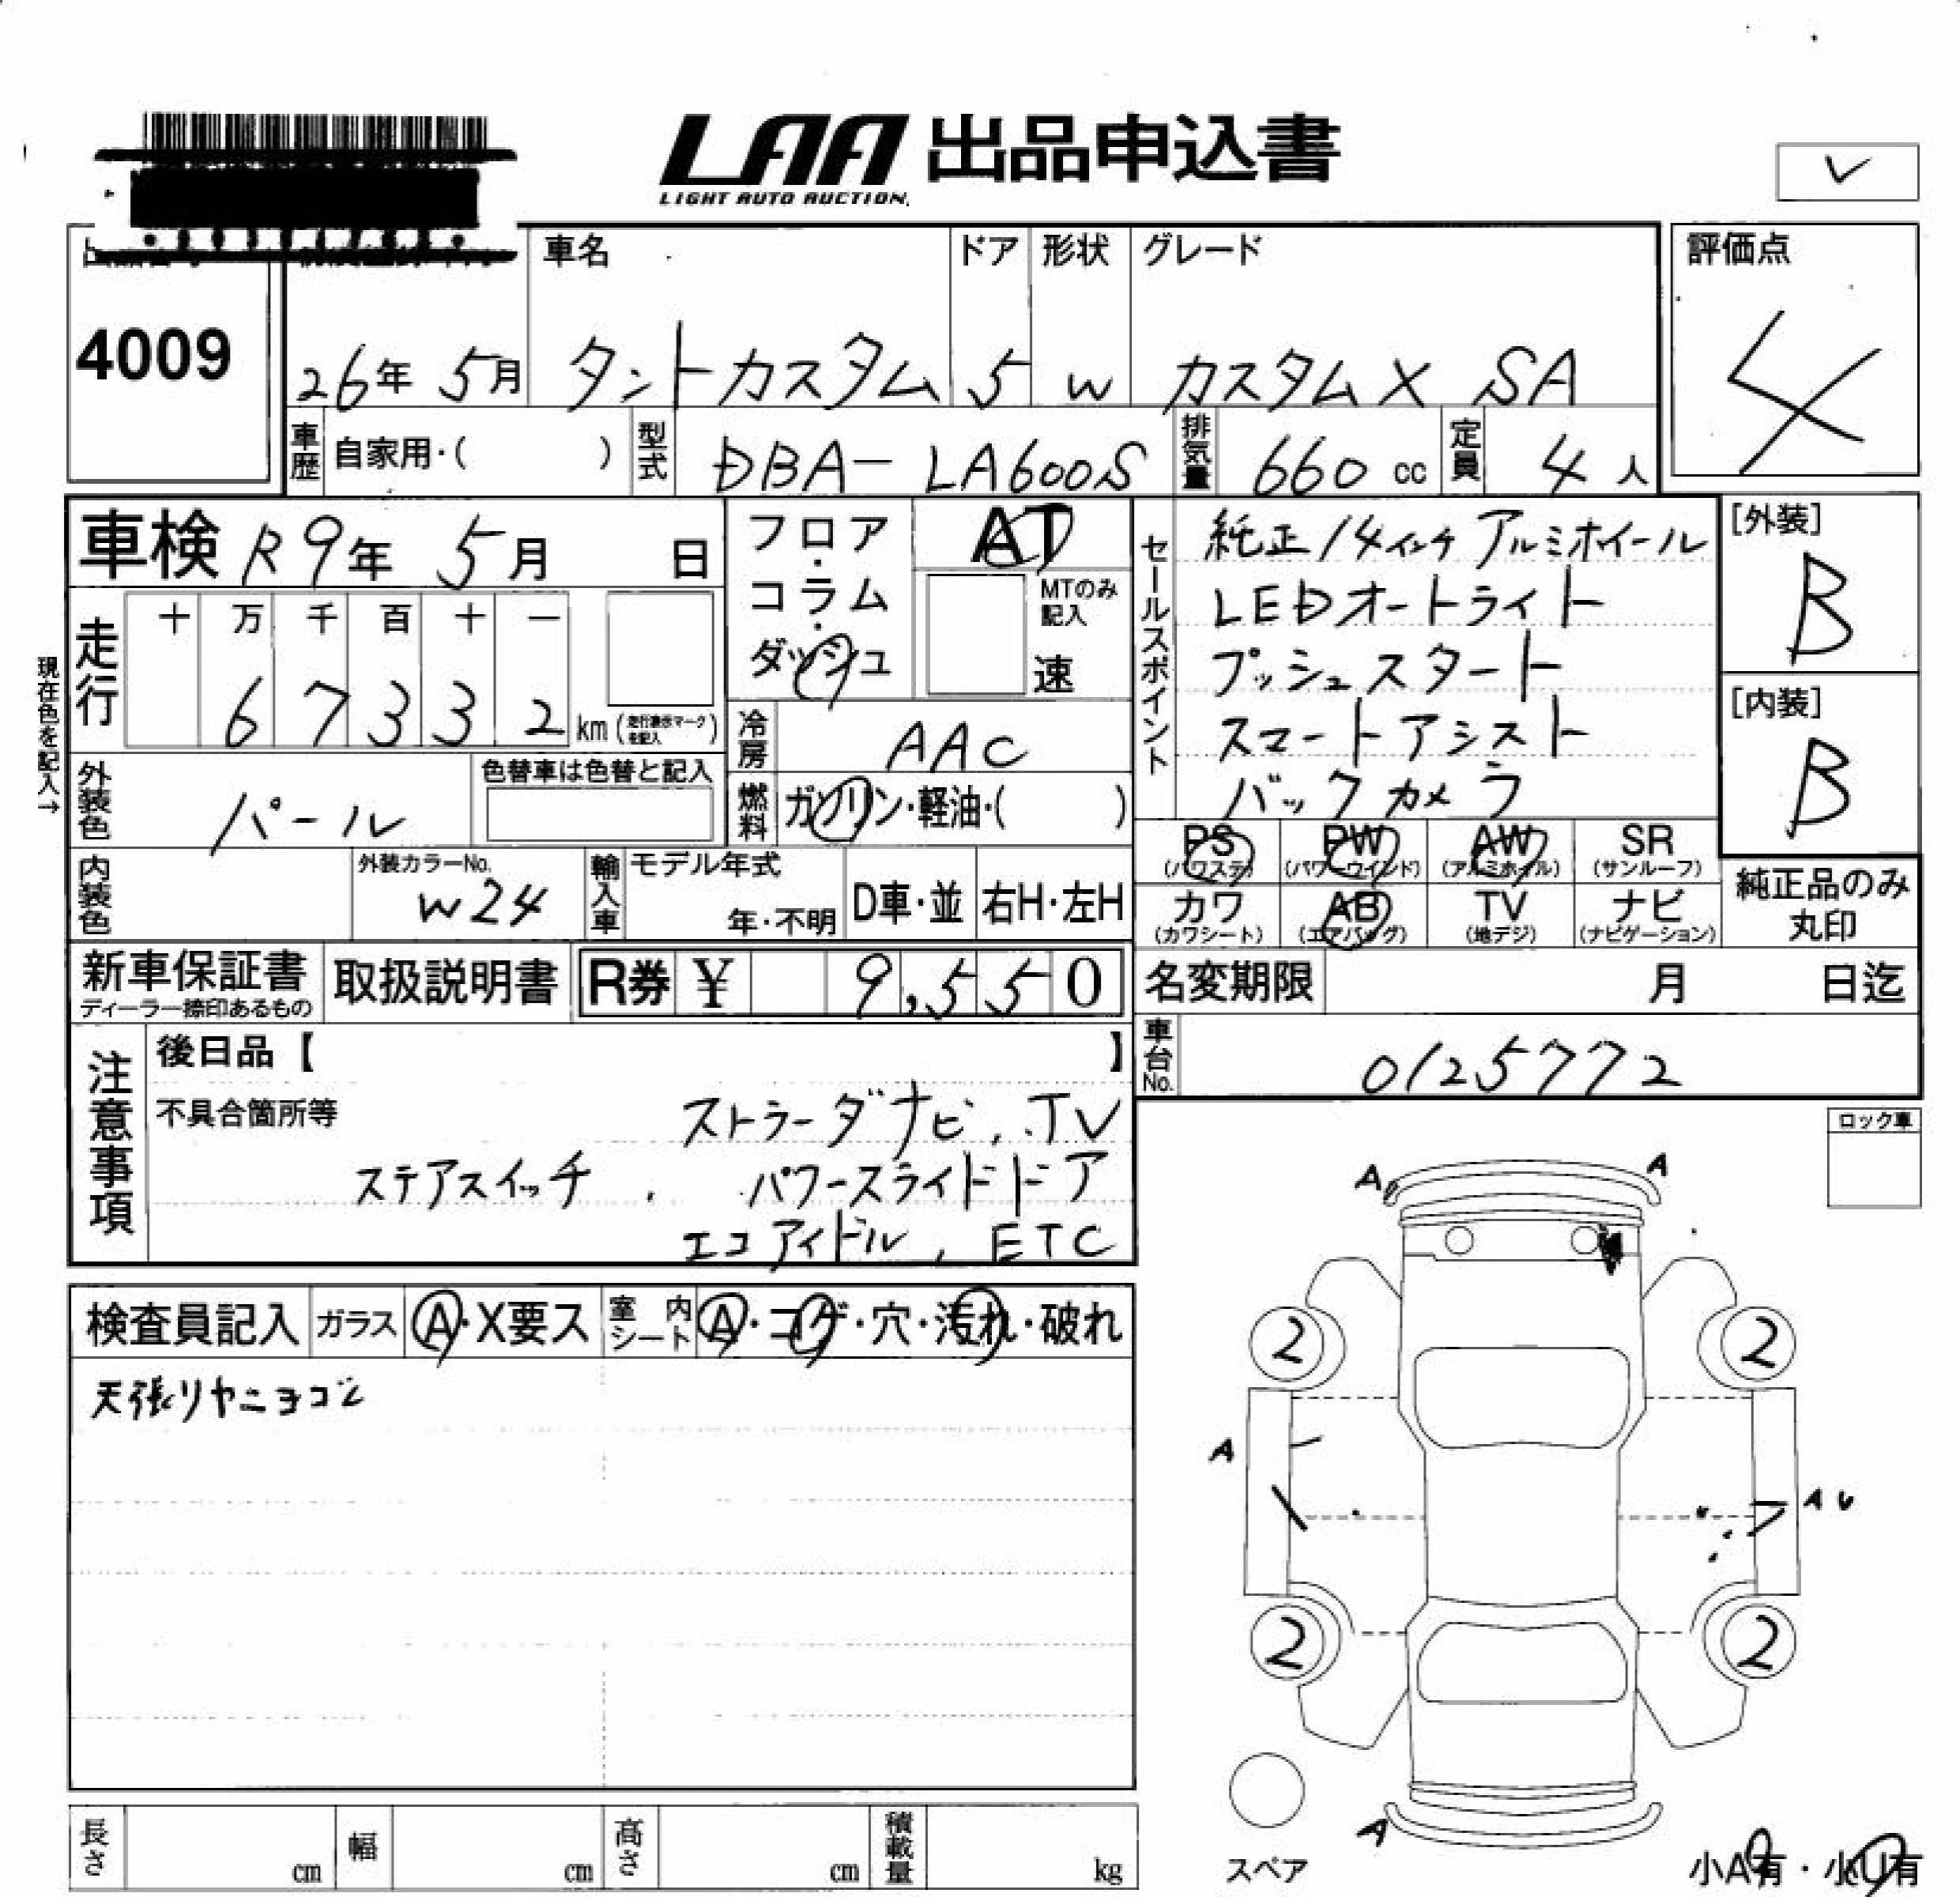 LAA 出品申込書
LIGHT AUTO AUCTION
車名 ドア 形状 グレード 評価点
4009 26年 5月 タントカスタム 5 W カスタムX SA 4
車歴 自家用・( ) 型式 DBA-LA600S 排気量 660 cc 定員 4人
車検 R9年 5月 日 フロア・コラム・ダッシュ AT
MTのみ記入 速
セールスポイント
純正14インチアルミホイール
LEDオートライト
プッシュスタート
スマートアシスト
バックカメラ
[外装] B
[内装] B
現在色を記入→
走行 十 万 千 百 十 一
67332 km (走行表示マークを記入)
冷房 AAC
外装色 パール 色替車は色替と記入
燃料 ガソリン・軽油・( )
PS (パワステ) PW (パワーウインド) AW (アルミホイル) SR (サンルーフ)
カワ (カワシート) AB (エアバッグ) TV (地デジ) ナビ (ナビゲーション)
純正品のみ丸印
内装色 外装カラーNo. W24 輸入車 モデル年式 年・不明 D車・並 右H・左H
新車保証書 ディーラー捺印あるもの 取扱説明書 R券 ¥ 9,550
名変期限 月 日迄
車台No. 0125772
注意事項 後日品【 】
不具合箇所等 ストラーダナビ, TV
ステアスイッチ, パワースライドドア
エコアイドル, ETC
ロック車
検査員記入 ガラス A・X要ス 室内シート A・コゲ・穴・汚れ・破れ
天張りヤニヨゴレ
A A
2 2
A A U
2 2
A
スペア
小A有・小U有
長さ cm 幅 cm 高さ cm 積載量 kg